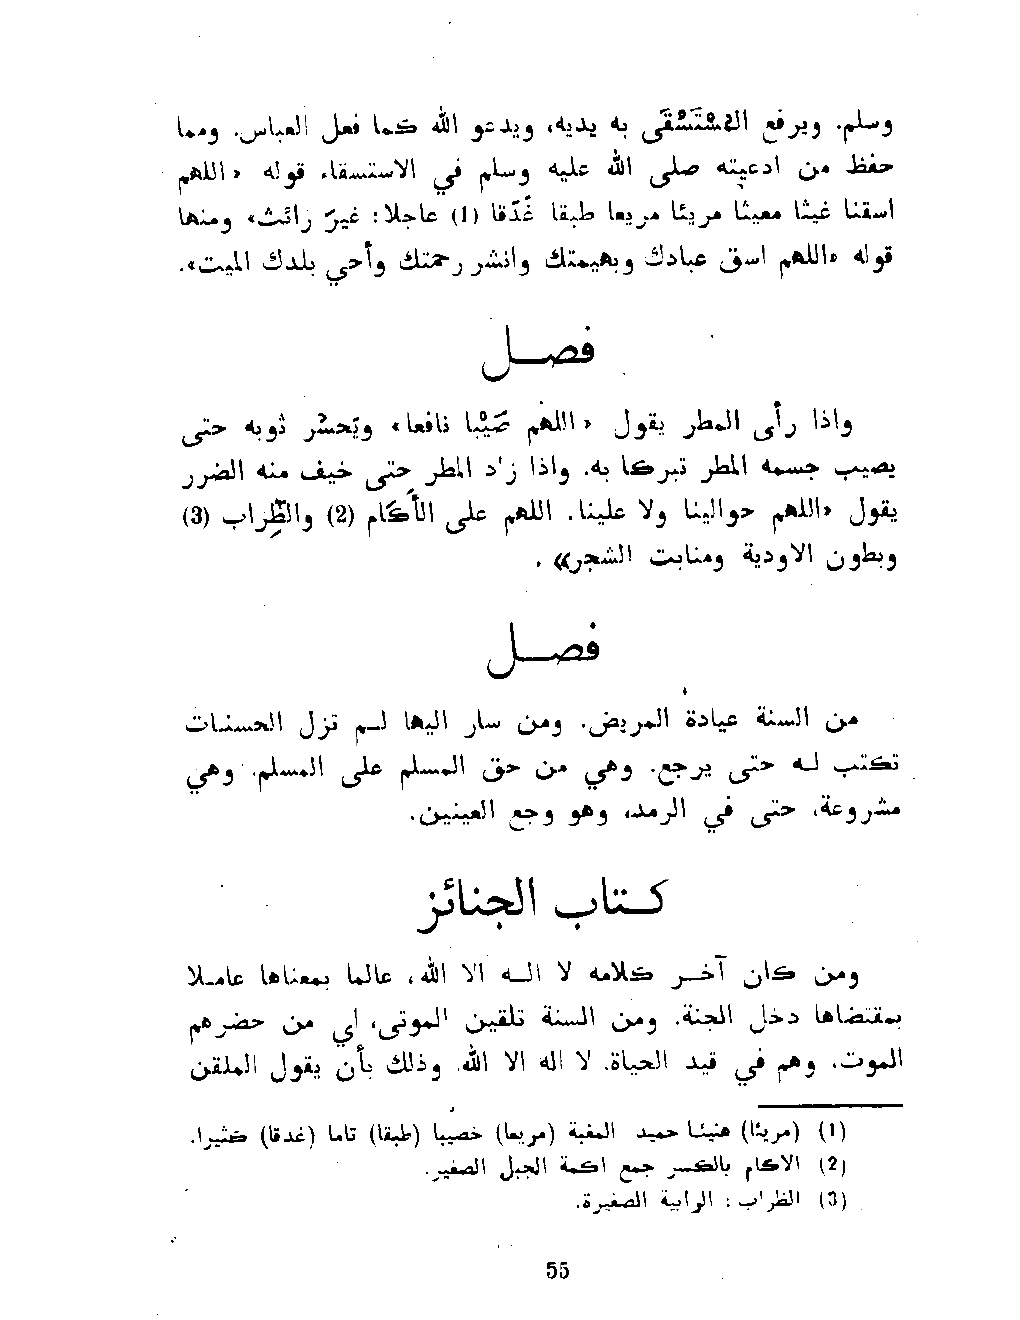 وسلم. ويرفع المُسْتَسْقَى به يديه، ويدعو الله كما فعل العباس. ومما
حفظ من ادعيته صلى الله عليه وسلم في الاستسقاء قوله «اللهم
اسقنا غيثا مغيثا مريئا مريعا طبقا غَدَقا (1) عاجلا: غيرَ رائث» ومنها
قوله «اللهم اسق عبادك وبهيمتك وانشر رحمتك وأحي بلدك الميت».
فصــل
واذا رأى المطر يقول «اللهم صَيْبا نافعا» ويَحسُر ثوبه حتى
يصيب جسمه المطر تبركا به. واذا زاد المطر حتى خيف منه الضرر
يقول «اللهم حوالينا ولا علينا. اللهم على الأَكَام (2) والظِراب (3)
وبطون الاودية ومنابت الشجر».
فصــل
من السنة عيادة المريض. ومن سار اليها لـم تزل الحسنات
تكتب لـه حتى يرجع. وهي من حق المسلم على المسلم. وهي
مشروعة، حتى في الرمد، وهو وجع العينين.
كـتاب الجنائز
ومن كان آخـر كلامه لا الـه الا الله، عالما بمعناها عامـلا
بمقتضاها دخل الجنة. ومن السنة تلقين الموتى، اي من حضرهم
الموت. وهم في قيد الحياة. لا اله الا الله. وذلك بأن يقول الملقن
(1) (مريئا) هنيئـا حميد المغبة (مريعا) خصيبا (طبقا) تاما (غدقا) كثيرا.
(2) الاكام بالكسر جمع اكمة الجبل الصغير.
(3) الظراب : الرابية الصغيرة.
55